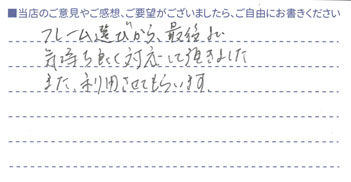 ■当店のご意見やご感想、ご要望がございましたら、ご自由にお書きください
フレーム選びから、最後まで
気持ち良く対応して頂きました
また、利用させてもらいます。